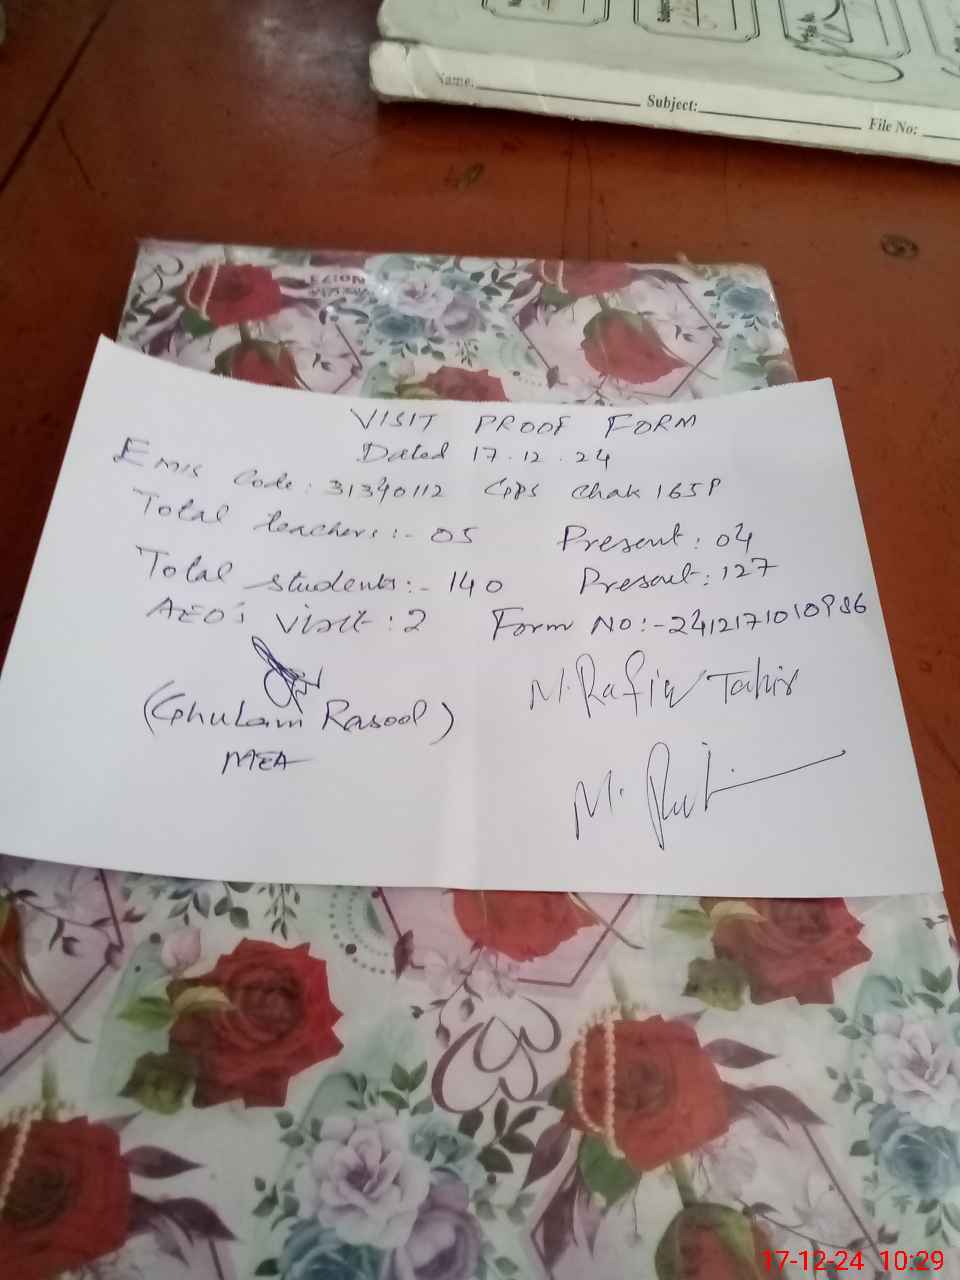 Name:
Subject:
File No:
VISIT PROOF FORM
Dated 17.12.24
Emis Code: 31340112 GPS Chak 165P
Total teachers:- 05 Present: 04
Total students:- 140 Present: 127
AEO's Visit: 2 Form NO:-
(Ghulam Rasool)
MEA
M. Rafiq Tahir
17-12-24 10:29